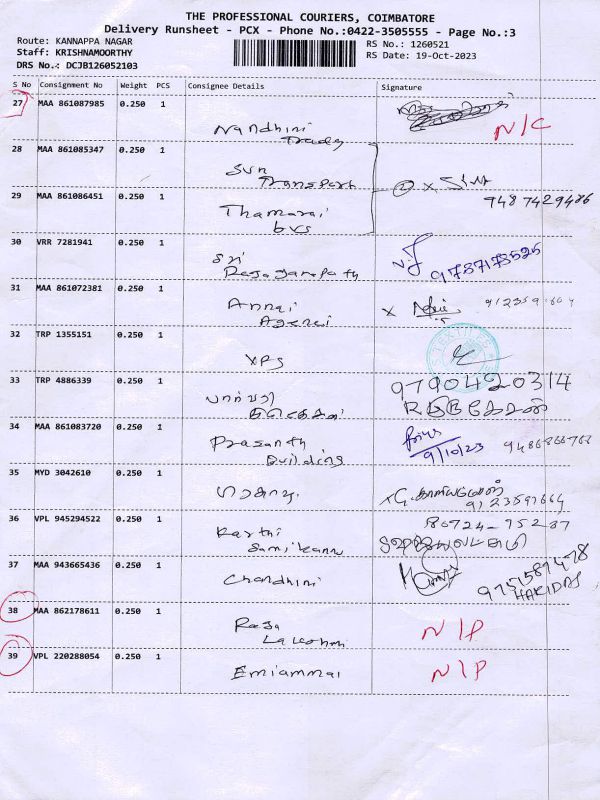 THE PROFESSIONAL COURIERS, COIMBATORE
Delivery Runsheet - PCX - Phone No.:0422-3505555 - Page No.:3
Route: KANNAPPA NAGAR
Staff: KRISHNAMOORTHY
DRS No.: DCJB126052103
RS No.: 1260521
RS Date: 19-Oct-2023
S No Consignment No Weight PCS Consignee Details Signature
27 MAA 861087985 0.250 1
Nandhini N/C
Tradg
28 MAA 861085347 0.250 1
Sun
Transport
29 MAA 861086451 0.250 1 9487429486
Thamarai
bvs
30 VRR 7281941 0.250 1
Sri 9787173525
Rajaganapathy
31 MAA 861072381 0.250 1
Annai
Agenci
32 TRP 1355151 0.250 1
XPS
33 TRP 4886339 0.250 1 9790420314
பார்வதி
34 MAA 861083720 0.250 1
Prasanth 9/10/23
Building
35 MYD 3042610 0.250 1
36 VPL 945294522 0.250 1
Karthi
Samikannu
37 MAA 943665436 0.250 1
Chandhini 9751589478
HARIDAS
38 MAA 862178611 0.250 1
Raja N/P
Lakshmi
39 VPL 220288054 0.250 1
Emiammai N/P